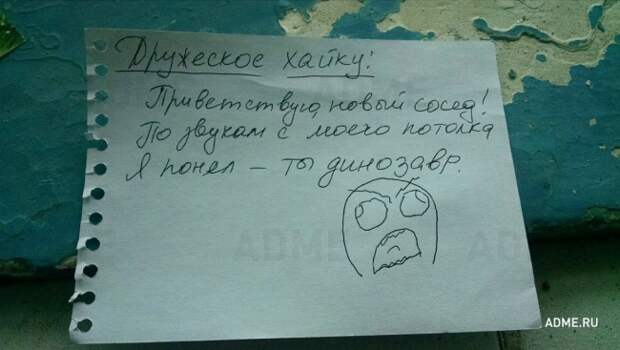 Дружеское хайку:
Приветствую, новый сосед!
По звукам с моего потолка
Я понял – ты динозавр.
ADME
ADME.RU